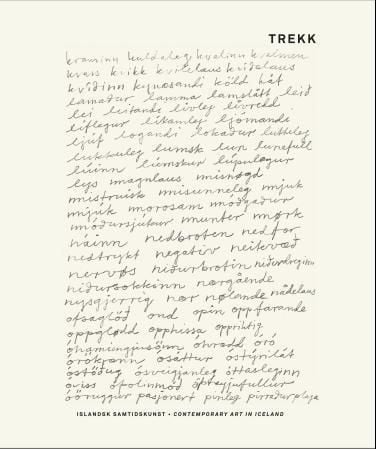 TREKK
kraminn kuldaleg kvalinn kvalmen
kvass kvikk kvikelaus kvíðalaus
kvíðinn kynosandi köld hát
lamaður lamma lamslått leið
lei leitandi livleg livredd
líflegur líkamleg ljómandi
ljúf logandi lokaður lutteleg
lukkuleg lumsk lur lunefull
lúinn lúmskur lúpulegur
lys magnlaus misnøgd
mistruisk misunneleg mjuk
mjúk morosam móðgaður
móðursjúkur munter mørk
náinn nedbroten nedfor
nedtrykt negativ neikvæð
nervøs niðurbrotin niðurdregin
niðursokkinn nærgående
nysgjerrig nær nølande nådelaus
ofsaglöð ond opin oppfarande
oppglødd opphissa oppriktig
óhamingjusöm óhrædd óró
órökrænn ósáttur óstýrilát
óstöðug ósveigjanleg óttasleginn
óviss óþolinmóð óþreyjufullur
öðruggur pasjonert pinleg pirraður plaga
ISLANDSK SAMTIDSKUNST • CONTEMPORARY ART IN ICELAND